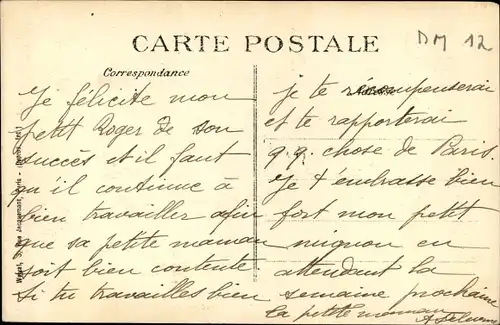 CARTE POSTALE
DM 12
Correspondance
Je félicite mon
petit Roger de son
succès et il faut
qu'il continue à
bien travailler afin
que sa petite maman
soit bien contente
Si tu travailles bien
je te récompenserai
et te rapporterai
q.q. chose de Paris.
Je t'embrasse bien
fort mon petit
mignon en
attendant la
semaine prochaine
La petite maman